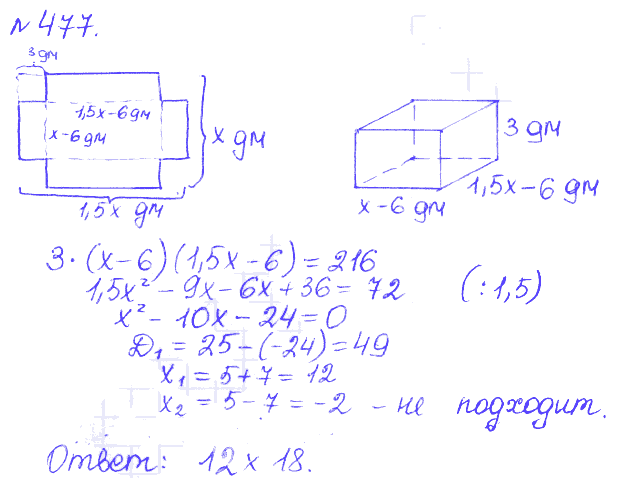 № 477.
3 дм
1,5x-6 дм
x-6 дм
x дм
1,5x дм
3 дм
1,5x-6 дм
x-6 дм
3·(x-6)(1,5x-6)=216
1,5x²-9x-6x+36=72 (:1,5)
x²-10x-24=0
D₁=25-(-24)=49
x₁=5+7=12
x₂=5-7=-2 - не подходит.
Ответ: 12 x 18.